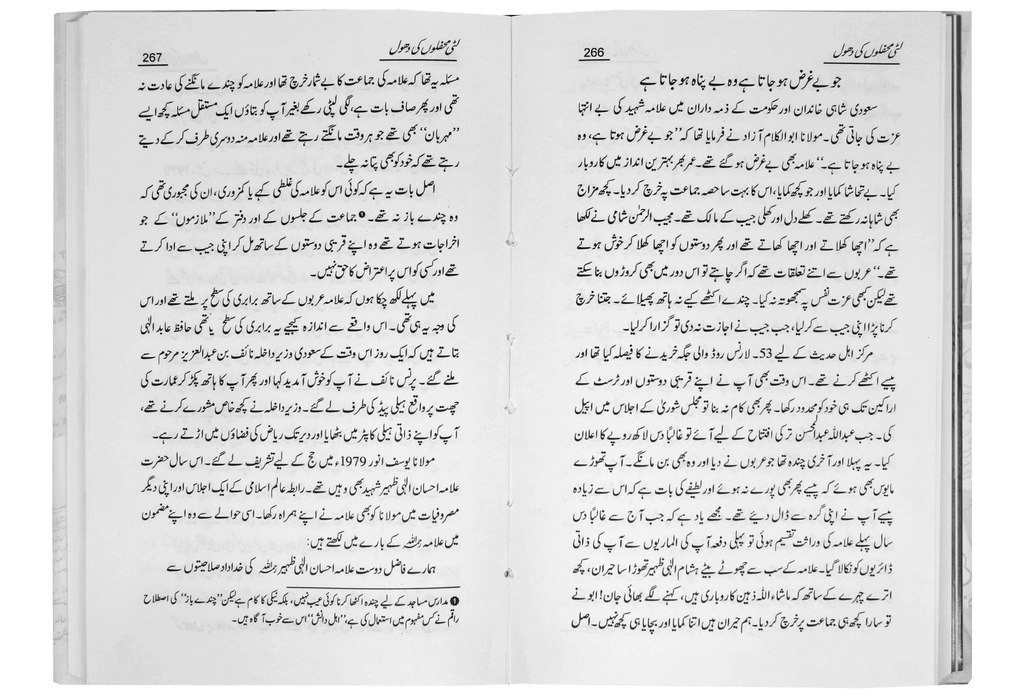 لٹی محفلوں کی دھول
266
جو بے غرض ہو جاتا ہے وہ بے پناہ ہو جاتا ہے
سعودی شاہی خاندان اور حکومت کے ذمہ داران میں علامہ شہید کی بے انتہا
عزت کی جاتی تھی۔ مولانا ابوالکلام آزاد نے فرمایا تھا کہ ”جو بے غرض ہوتا ہے، وہ
بے پناہ ہو جاتا ہے۔“ علامہ بھی بے غرض ہو گئے تھے۔ عمر بھر بہترین انداز میں کاروبار
کیا۔ بے تحاشا کمایا اور جو کچھ کمایا، اس کا بہت سا حصہ جماعت پہ خرچ کر دیا۔ کچھ مزاج
بھی شاہانہ رکھتے تھے۔ کھلے دل اور کھلی جیب کے مالک تھے۔ مجیب الرحمٰن شامی نے لکھا
ہے کہ ”اچھا کھلاتے اور اچھا کھاتے تھے اور پھر دوستوں کو اچھا کھلا کر خوش ہوتے
تھے۔“ عربوں سے اتنے تعلقات تھے کہ اگر چاہتے تو اس دور میں بھی کروڑوں بنا سکتے
تھے لیکن کبھی عزت نفس پہ سمجھوتہ نہ کیا۔ چندے اکٹھے کیے نہ ہاتھ پھیلائے۔ جتنا خرچ
کرنا پڑا اپنی جیب سے کر لیا، جب جیب نے اجازت نہ دی تو گزارا کر لیا۔
مرکز اہل حدیث کے لیے 53۔ لارنس روڈ والی جگہ خریدنے کا فیصلہ کیا تھا اور
پیسے اکٹھے کرنے تھے۔ اس وقت بھی آپ نے اپنے قریبی دوستوں اور ٹرسٹ کے
اراکین تک ہی خود کو محدود رکھا۔ پھر بھی کام نہ بنا تو مجلس شوریٰ کے اجلاس میں اپیل
کی۔ جب عبداللہ عبدالمحسن ترکی افتتاح کے لیے آئے تو غالباً دس لاکھ روپے کا اعلان
کیا۔ یہ پہلا اور آخری چندہ تھا جو عربوں نے دیا اور وہ بھی بن مانگے۔ آپ تھوڑے
مایوس بھی ہوئے کہ پیسے پھر بھی پورے نہ ہوئے اور لطیفے کی بات ہے کہ اس سے زیادہ
پیسے آپ نے اپنی گرہ سے ڈال دیئے تھے۔ مجھے یاد ہے کہ جب آج سے غالباً دس
سال پہلے علامہ کی وراثت تقسیم ہوئی تو پہلی دفعہ آپ کی الماریوں سے آپ کی ذاتی
ڈائریوں کو نکالا گیا۔ علامہ کے سب سے چھوٹے بیٹے ہشام الٰہی ظہیر تھوڑا سا حیران، کچھ
اترے چہرے کے ساتھ کہ ماشاء اللہ ذہین کاروباری ہیں، کہنے لگے بھائی جان! ابو نے
تو سارا کچھ ہی جماعت پر خرچ کر دیا۔ ہم حیران ہیں اتنا کمایا اور بچایا ہی کچھ نہیں۔ اصل
لٹی محفلوں کی دھول
267
مسئلہ یہ تھا کہ علامہ کی جماعت کا بے شمار خرچ تھا اور علامہ کو چندے مانگنے کی عادت نہ
تھی اور پھر صاف بات ہے، لگی لپٹی رکھے بغیر آپ کو بتاؤں ایک مستقل مسئلہ کچھ ایسے
”مہربان“ بھی تھے جو ہر وقت مانگتے رہتے تھے اور علامہ منہ دوسری طرف کر کے دیتے
رہتے تھے کہ خود کو بھی پتا نہ چلے۔
اصل بات یہ ہے کہ کوئی اس کو علامہ کی غلطی کہے یا کمزوری، ان کی مجبوری تھی کہ
وہ چندے باز نہ تھے۔❶ جماعت کے جلسوں کے اور دفتر کے ”ملازموں“ کے جو
اخراجات ہوتے تھے وہ اپنے قریبی دوستوں کے ساتھ مل کر اپنی جیب سے ادا کرتے
تھے اور کسی کو اس پر اعتراض کا حق نہیں۔
میں پہلے لکھ چکا ہوں کہ علامہ عربوں کے ساتھ برابری کی سطح پر ملتے تھے اور اس
کی وجہ یہ ہی تھی۔ اس واقعے سے اندازہ کیجیے یہ برابری کی سطح کیا تھی حافظ عابد الٰہی
بتاتے ہیں کہ ایک روز اس وقت کے سعودی وزیر داخلہ نائف بن عبدالعزیز مرحوم سے
ملنے گئے۔ پرنس نائف نے آپ کو خوش آمدید کہا اور پھر آپ کا ہاتھ پکڑ کر عمارت کی
چھت پر واقع ہیلی پیڈ کی طرف لے گئے۔ وزیر داخلہ نے کچھ خاص مشورے کرنے تھے،
آپ کو اپنے ذاتی ہیلی کاپٹر میں بٹھایا اور دیر تک ریاض کی فضاؤں میں اڑتے رہے۔
مولانا یوسف انور 1979ء میں حج کے لیے تشریف لے گئے۔ اس سال حضرت
علامہ احسان الٰہی ظہیر شہید بھی وہیں تھے۔ رابطہ عالم اسلامی کے ایک اجلاس اور اپنی دیگر
مصروفیات میں مولانا کو بھی علامہ نے اپنے ہمراہ رکھا۔ اسی حوالے سے وہ اپنے مضمون
میں علامہ رحمہ اللہ کے بارے میں لکھتے ہیں:
ہمارے فاضل دوست علامہ احسان الٰہی ظہیر رحمہ اللہ کی خداداد صلاحیتوں سے
❶ مدارس مساجد کے لیے چندہ اکٹھا کرنا کوئی عیب نہیں، بلکہ نیکی کا کام ہے لیکن ”چندے باز“ کی اصطلاح
راقم نے کس مفہوم میں استعمال کی ہے، ”اہل دانش“ اس سے خوب آگاہ ہیں۔